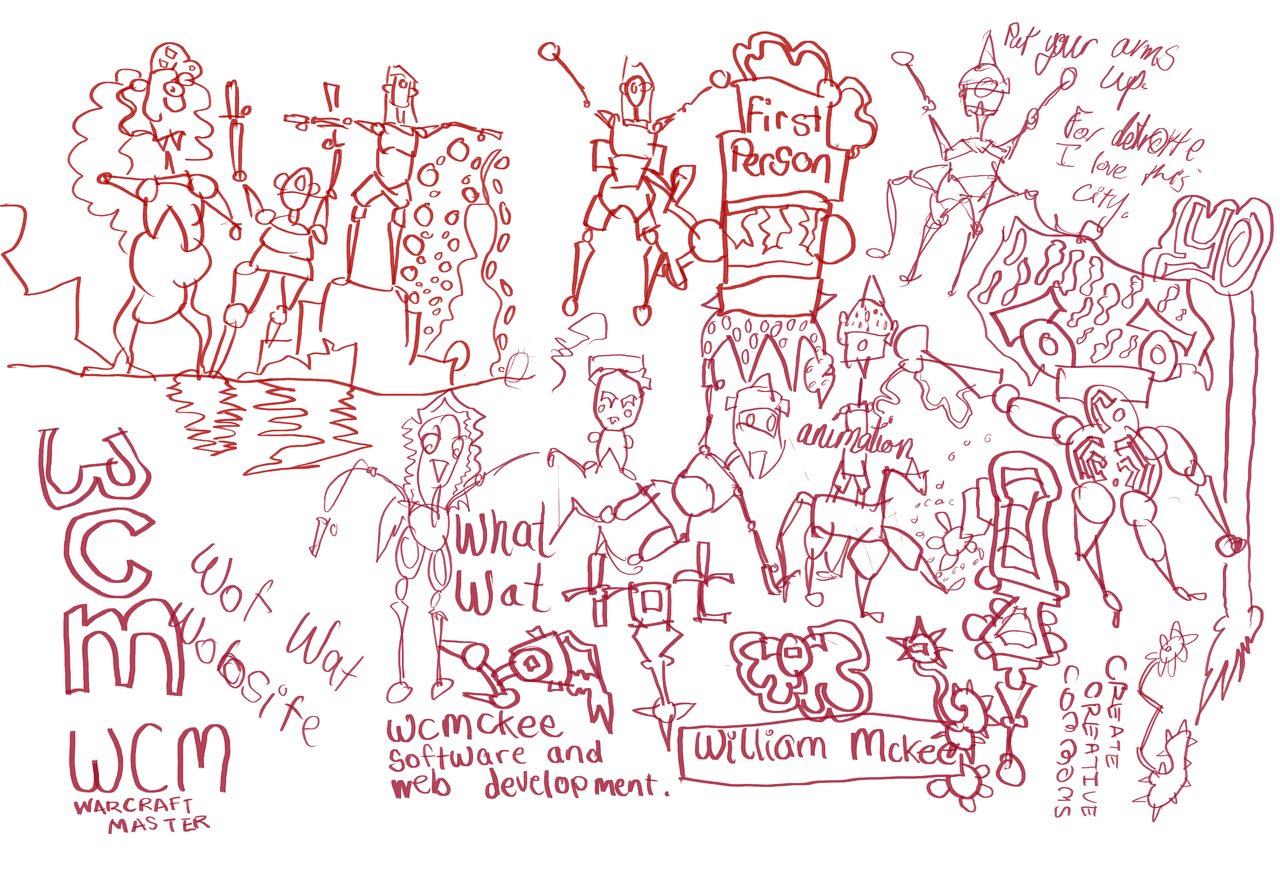 Put your arms
up.
For detroite
I love this
City.
First
Person
YO
animation
What
Wat
WCM
Wof Wat
Wobsite
WCM
WARCRAFT
MASTER
wcmckee
software and
web development.
William Mckee
CREATE
CREATIVE
COMMOMS